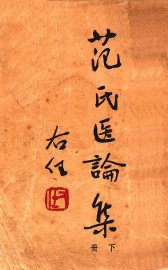 范氏医論集
右任
下冊